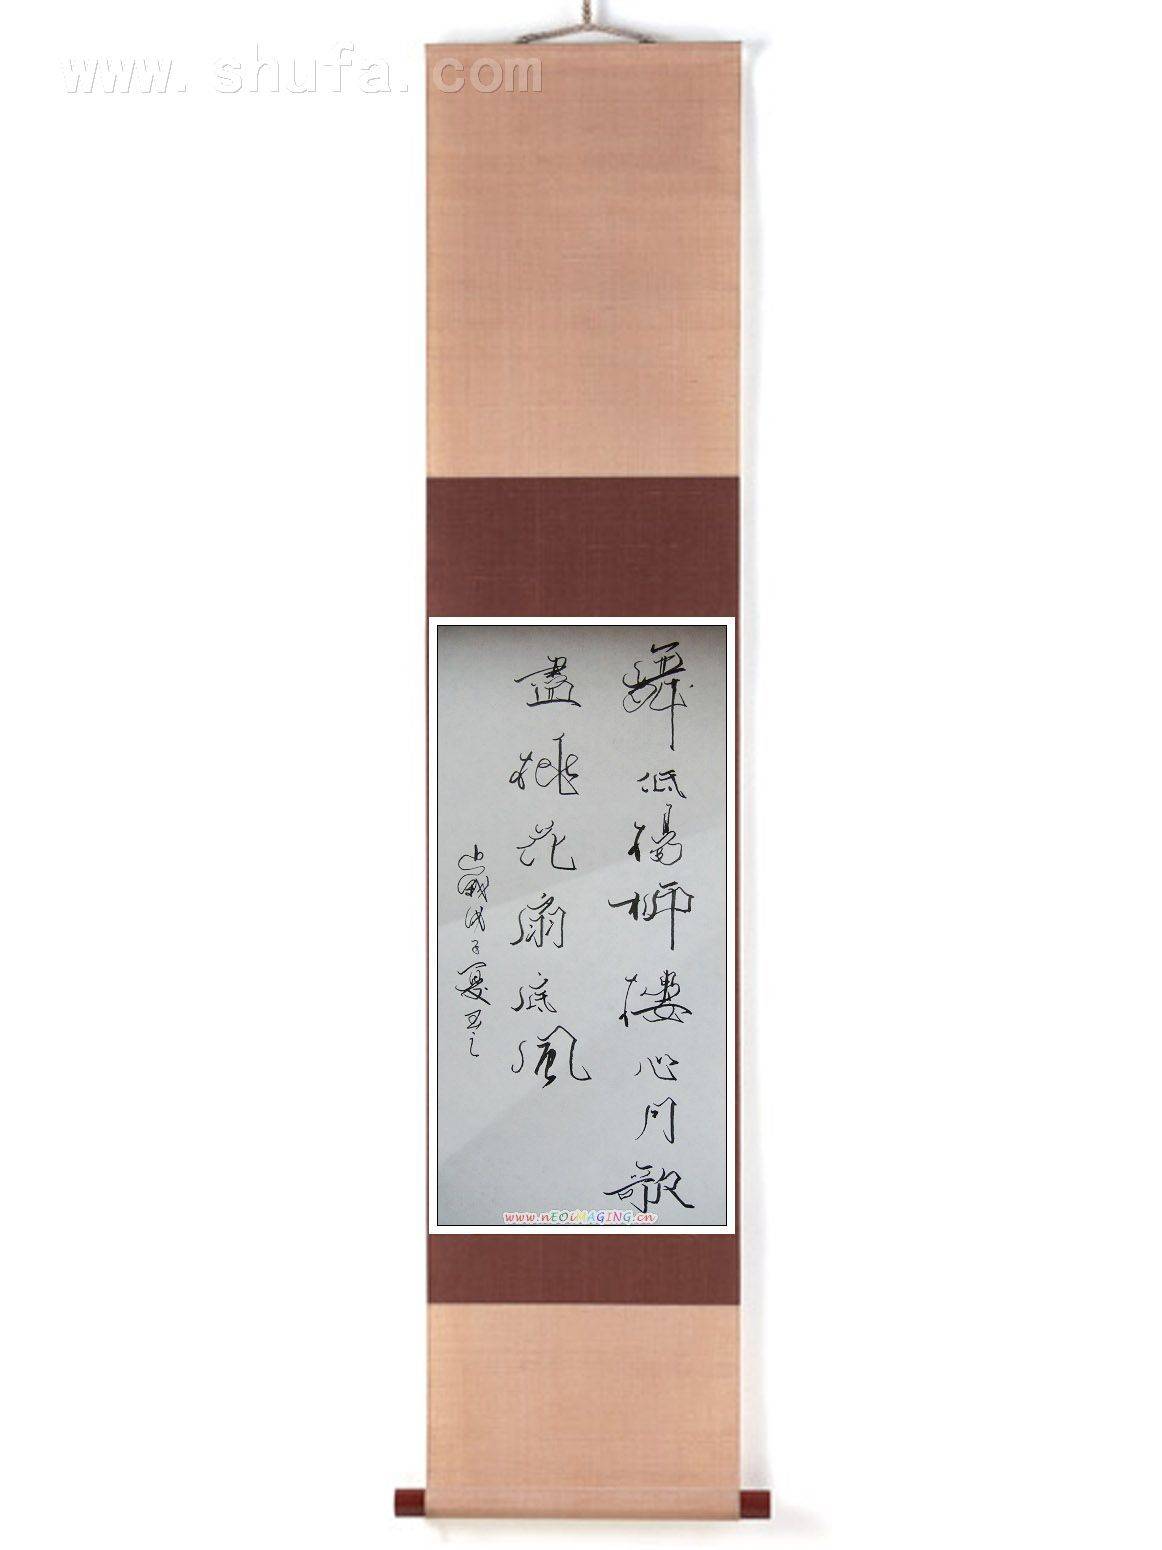 www.shufa.com
舞低楊柳樓心月歌
盡桃花扇底風
歲戊子夏
www.nEOiMAGING.cn